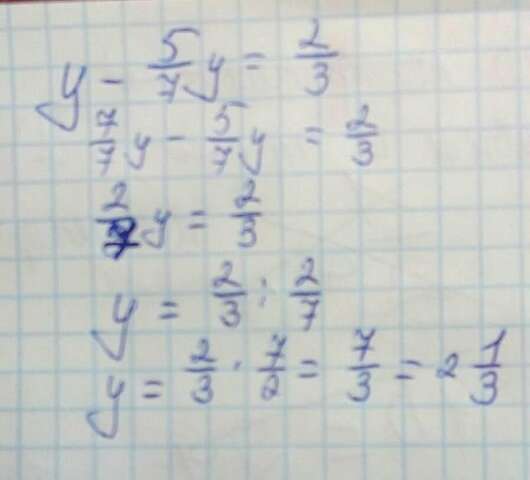 y - 5/7 y = 2/3
7/7 y - 5/7 y = 2/3
2/7 y = 2/3
y = 2/3 : 2/7
y = 2/3 · 7/2 = 7/3 = 2 1/3